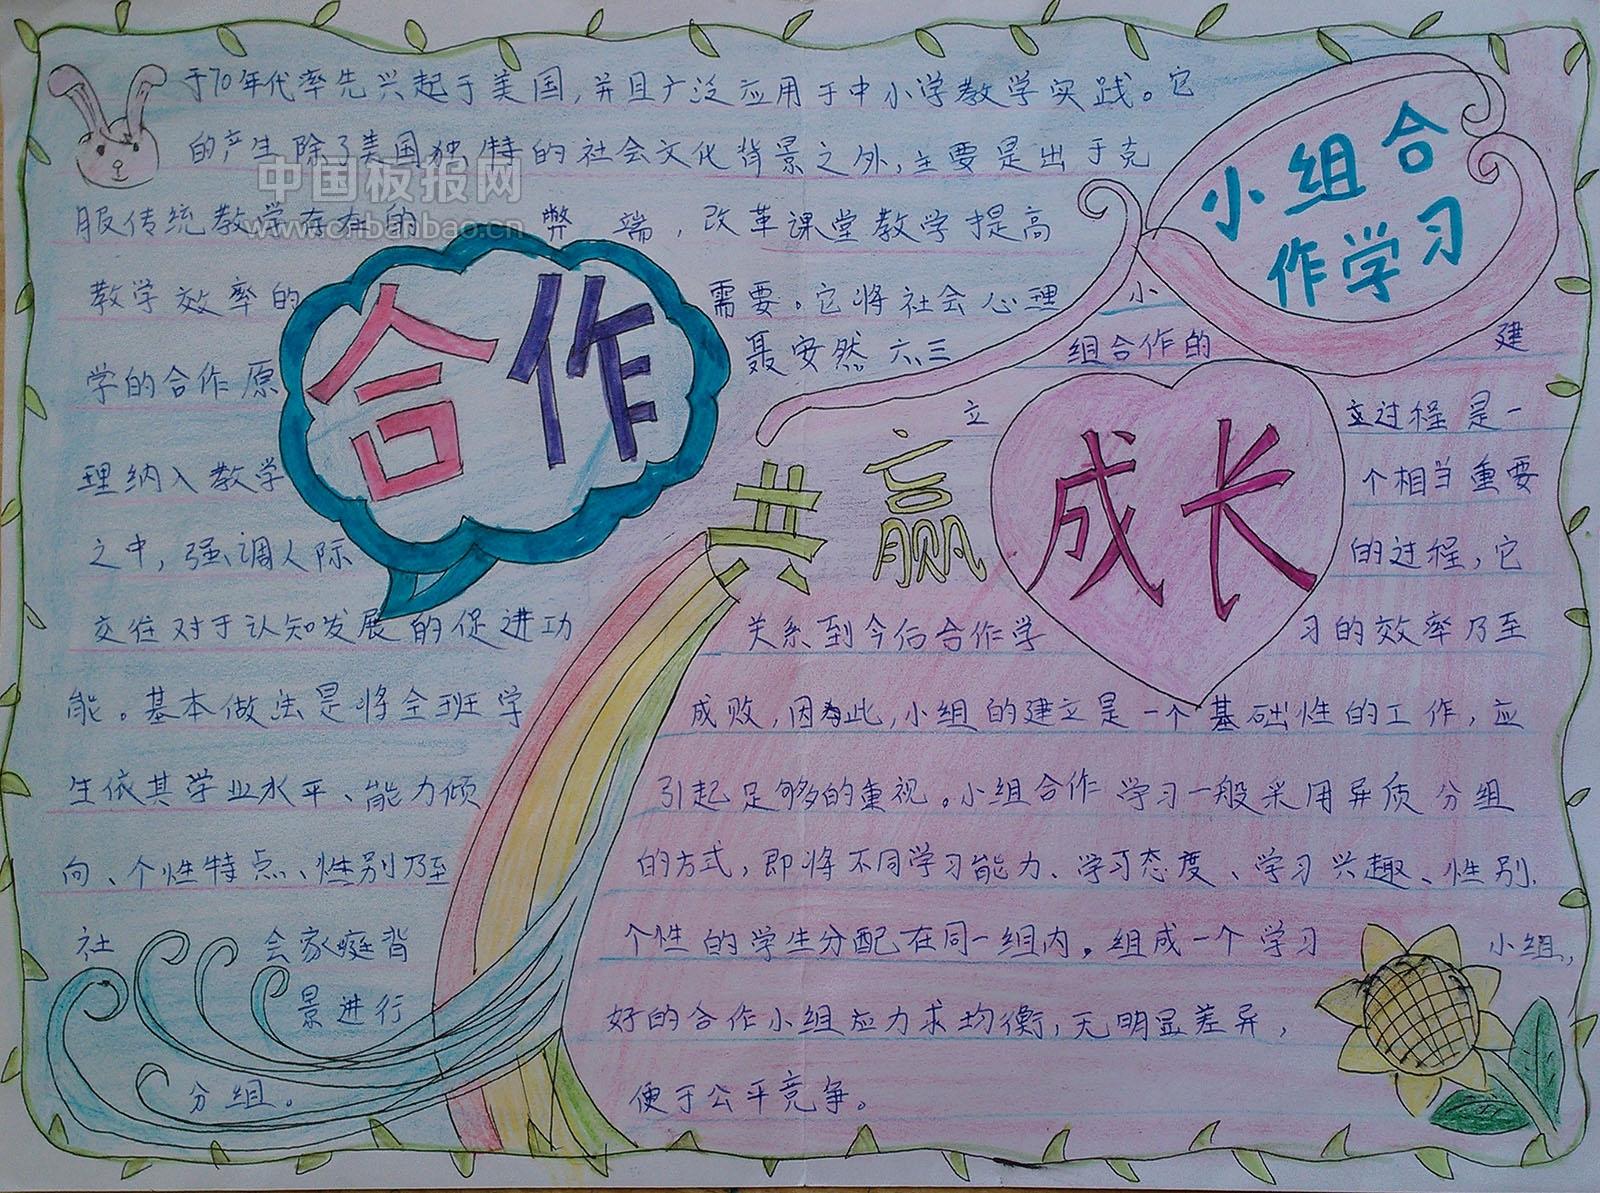 于70年代率先兴起于美国,并且广泛应用于中小学教学实践。它
的产生除了美国独特的社会文化背景之外,主要是出于克
服传统教学存在的 弊 端,改革课堂教学提高
教学效率的 需要。它将社会心理
学的合作原
理纳入教学
之中,强调人际
交往对于认知发展的促进功
能。基本做法是将全班学
生依其学业水平、能力倾
向、个性特点、性别乃至
社 会家庭背
景进行
分组。
中国板报网
www.cnbanbao.cn
合作
共赢
成长
小组合
作学习
聂安然 六.三
小
组合作的 建
立 立过程是一
个相当重要
的过程,它
关系到今后合作学 习的效率乃至
成败,因为此,小组的建立是一个基础性的工作,应
引起足够的重视。小组合作学习一般采用异质分组
的方式,即将不同学习能力、学习态度、学习兴趣、性别.
个性的学生分配在同一组内。组成一个学习 小组,
好的合作小组应力求均衡,无明显差异,
便于公平竞争。